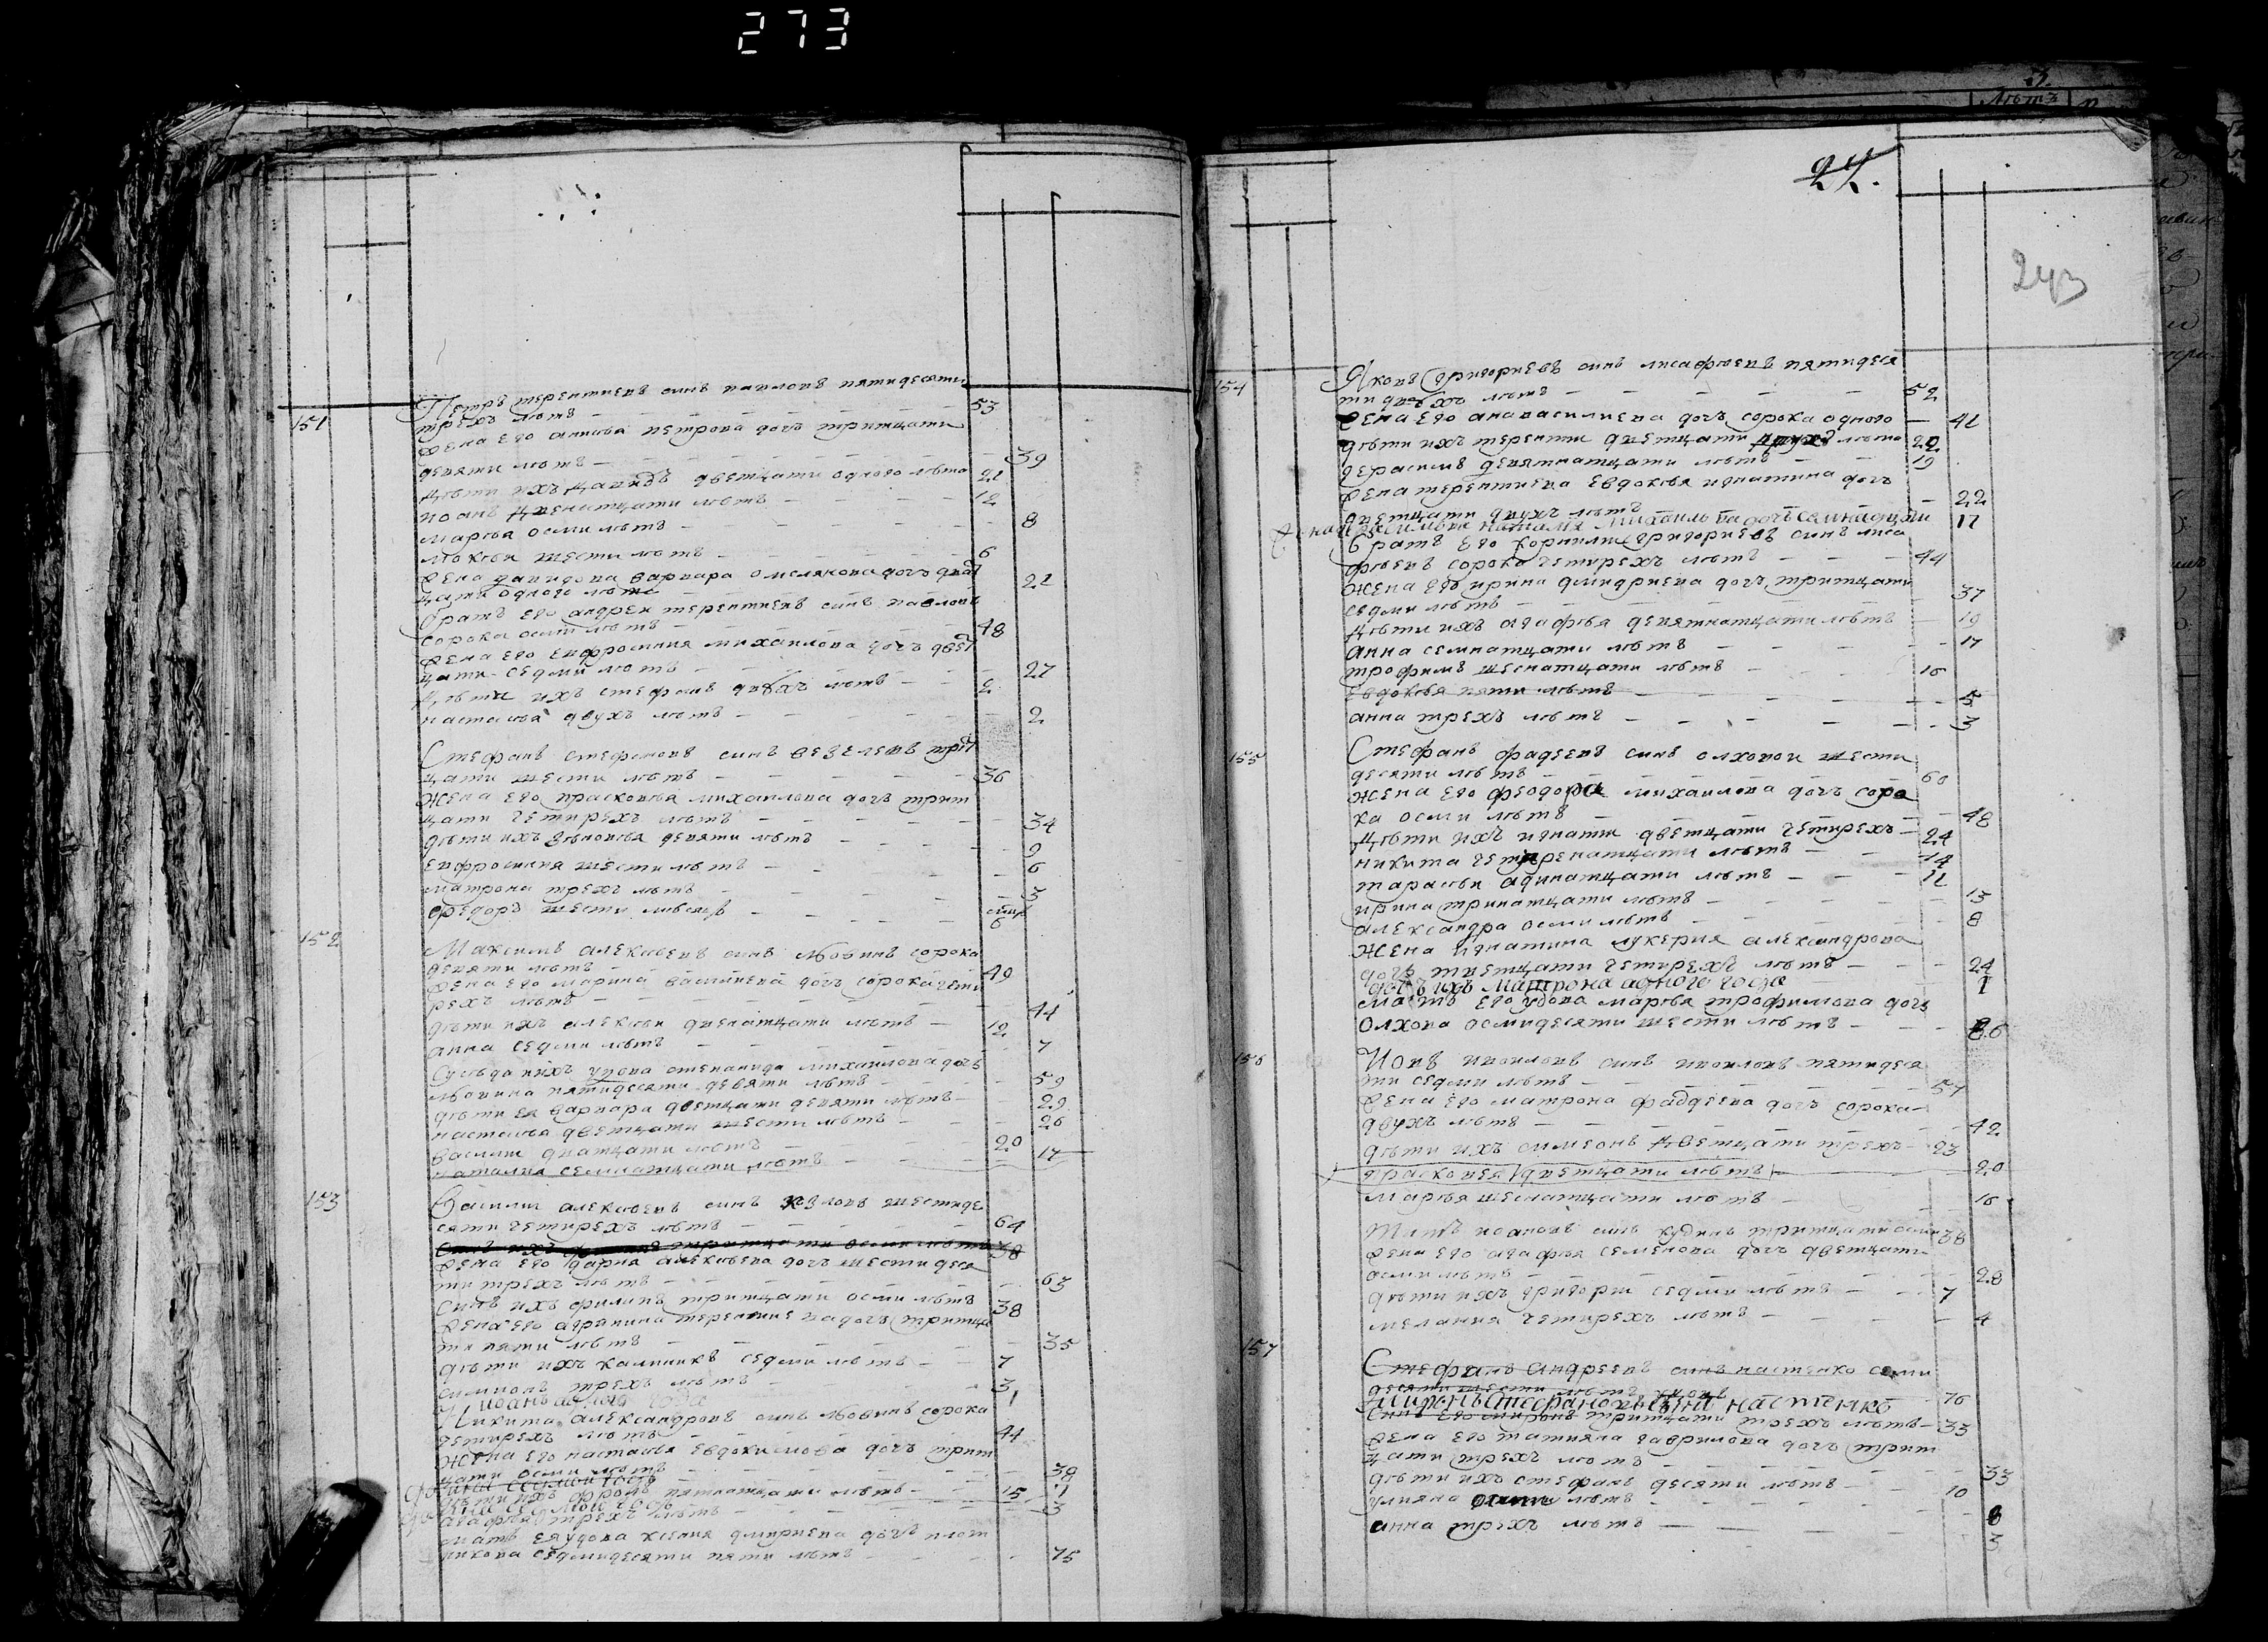 273
151 Петръ терентиевъ синъ павловъ пятидесяти
трехъ лѣтъ — 53
жена его анисия петрова дочъ тритцати
девяти лѣтъ — 39
дѣти ихъ давидъ дветцати одного лѣта 21
иоанъ двенатцати лѣтъ — 12
марѳа осми лѣтъ — 8
мокѣи шести лѣтъ — 6
жена давидова варвара омелянова дочъ двет
цати одного лѣта — 21
братъ его андреи терентиевъ синъ павловъ
сорока осми лѣтъ — 48
жена его евфросиния михаилова дочъ двет
цати седми лѣтъ — 27
дѣти ихъ стефанъ двохъ лѣтъ — 2
настасѣя двухъ лѣтъ — 2
Стефанъ стефановъ синъ трит
цати шести лѣтъ — 36
жена его прасковѣя михаилова дочъ трит
цати четирехъ лѣтъ — 34
дѣти ихъ зѣновѣя девяти лѣтъ — 9
евфросиния шести лѣтъ — 6
матрона трехъ лѣтъ — 3
федоръ шести — 6
152 Максимъ алексѣевъ синъ лѣовинъ сорока
девяти лѣтъ — 49
жена его марина василиева дочъ сорока чети
рехъ лѣтъ — 44
дѣти ихъ алексѣи двенатцати лѣтъ — 12
анна седми лѣтъ — 7
Сусѣда ихъ удова степанида михаилова дочъ
лѣовина пятидесяти девяти лѣтъ — 59
дѣти ея варвара дветцати девяти лѣтъ — 29
настасѣя дветцати шести лѣтъ — 26
василии дватцати лѣтъ — 20
наталия семнатцати лѣтъ — 17
153 Василии алексѣевъ синъ козловъ шестиде
сяти четирехъ лѣтъ — 64
Синъ ихъ филипъ тритцати осми лѣтъ 38
жена его дария алексѣева дочъ шестидеся
ти трехъ лѣтъ — 63
Синъ ихъ филипъ тритцати осми лѣтъ 38
жена его агрипина терентиева дочъ тритца
ти пяти лѣтъ — 35
дѣти ихъ калиникъ седми лѣтъ — 7
симионъ трехъ лѣтъ — 3
иоанъ адного года 1
Никита александровъ синъ лѣовинъ сорока
четирехъ лѣтъ — 44
жена его настасѣя евдокимова дочъ трит
цати осми лѣтъ — 38
дѣти ихъ пятнатцати лѣтъ — 15
агафѣя трехъ лѣтъ — 3
мать ея удова ксения дмитриева дочъ плот
никова седмидесяти пяти лѣтъ — 75
24.
243
154 Яковъ григориевъ синъ лисафѣевъ пятидеся
ти двохъ лѣтъ — 52
жена его анна василиева дочъ сорока одного — 41
дѣти ихъ терентии дветцати двухъ лѣтъ 22
герасимъ девятнатцати лѣтъ — 19
жена терентиева евдокѣя игнатина дочъ
дветцати двухъ лѣтъ — 22
жена герасимова наталя михаилова дочъ семнадцати 17
братъ его корнилии григориевъ синъ лиса
фѣевъ сорока четирехъ лѣтъ — 44
жена его ирина дмитриева дочъ тритцати
седми лѣтъ — 37
дѣти ихъ агафѣя девятнатцати лѣтъ — 19
анна семнатцати лѣтъ — 17
трофимъ шеснатцати лѣтъ — 16
евдокѣя пяти лѣтъ — 5
анна трехъ лѣтъ — 3
155 Стефанъ фадеевъ синъ олховои шести
десяти лѣтъ — 60
жена его феодора михаилова дочъ соро
ка осми лѣтъ — 48
дѣти ихъ игнатии дветцати четирехъ — 24
никита четиренатцати лѣтъ — 14
тарасѣи адинатцати лѣтъ — 11
ирина тринатцати лѣтъ — 13
александра осми лѣтъ — 8
жена игнатина лукерия александрова
дочъ дветцати четирехъ лѣтъ — 24
дочъ ихъ матрона адного года 1
мать его удова марѳа трофимова дочъ
олхова осмидесяти шести лѣтъ — 86
156 Иовъ ивоиловъ синъ ивоиловъ пятидеся
ти седми лѣтъ — 57
жена его матрона фаддеева дочъ сорока
двухъ лѣтъ — 42
дѣти ихъ симеонъ дветцати трехъ — 23
прасковея дветцати лѣтъ — 20
марѳя шеснатцати лѣтъ — 16
Титъ иоановъ синъ кудинъ тритцати осми 38
жена его агафѣя семенова дочъ дветцати
осми лѣтъ — 28
дѣти ихъ григории седми лѣтъ — 7
мелания четирехъ лѣтъ — 4
157 Стефанъ андреевъ синъ настенко семи
десяти шести лѣтъ — 76
миронъ стефановъ синъ настенко
Синъ его миронъ тритцати трехъ лѣтъ — 33
жена его татияна гаврилова дочъ трит
цати трехъ лѣтъ — 33
дѣти ихъ стефанъ десяти лѣтъ — 10
улияна осми лѣтъ — 8
анна трехъ лѣтъ — 3